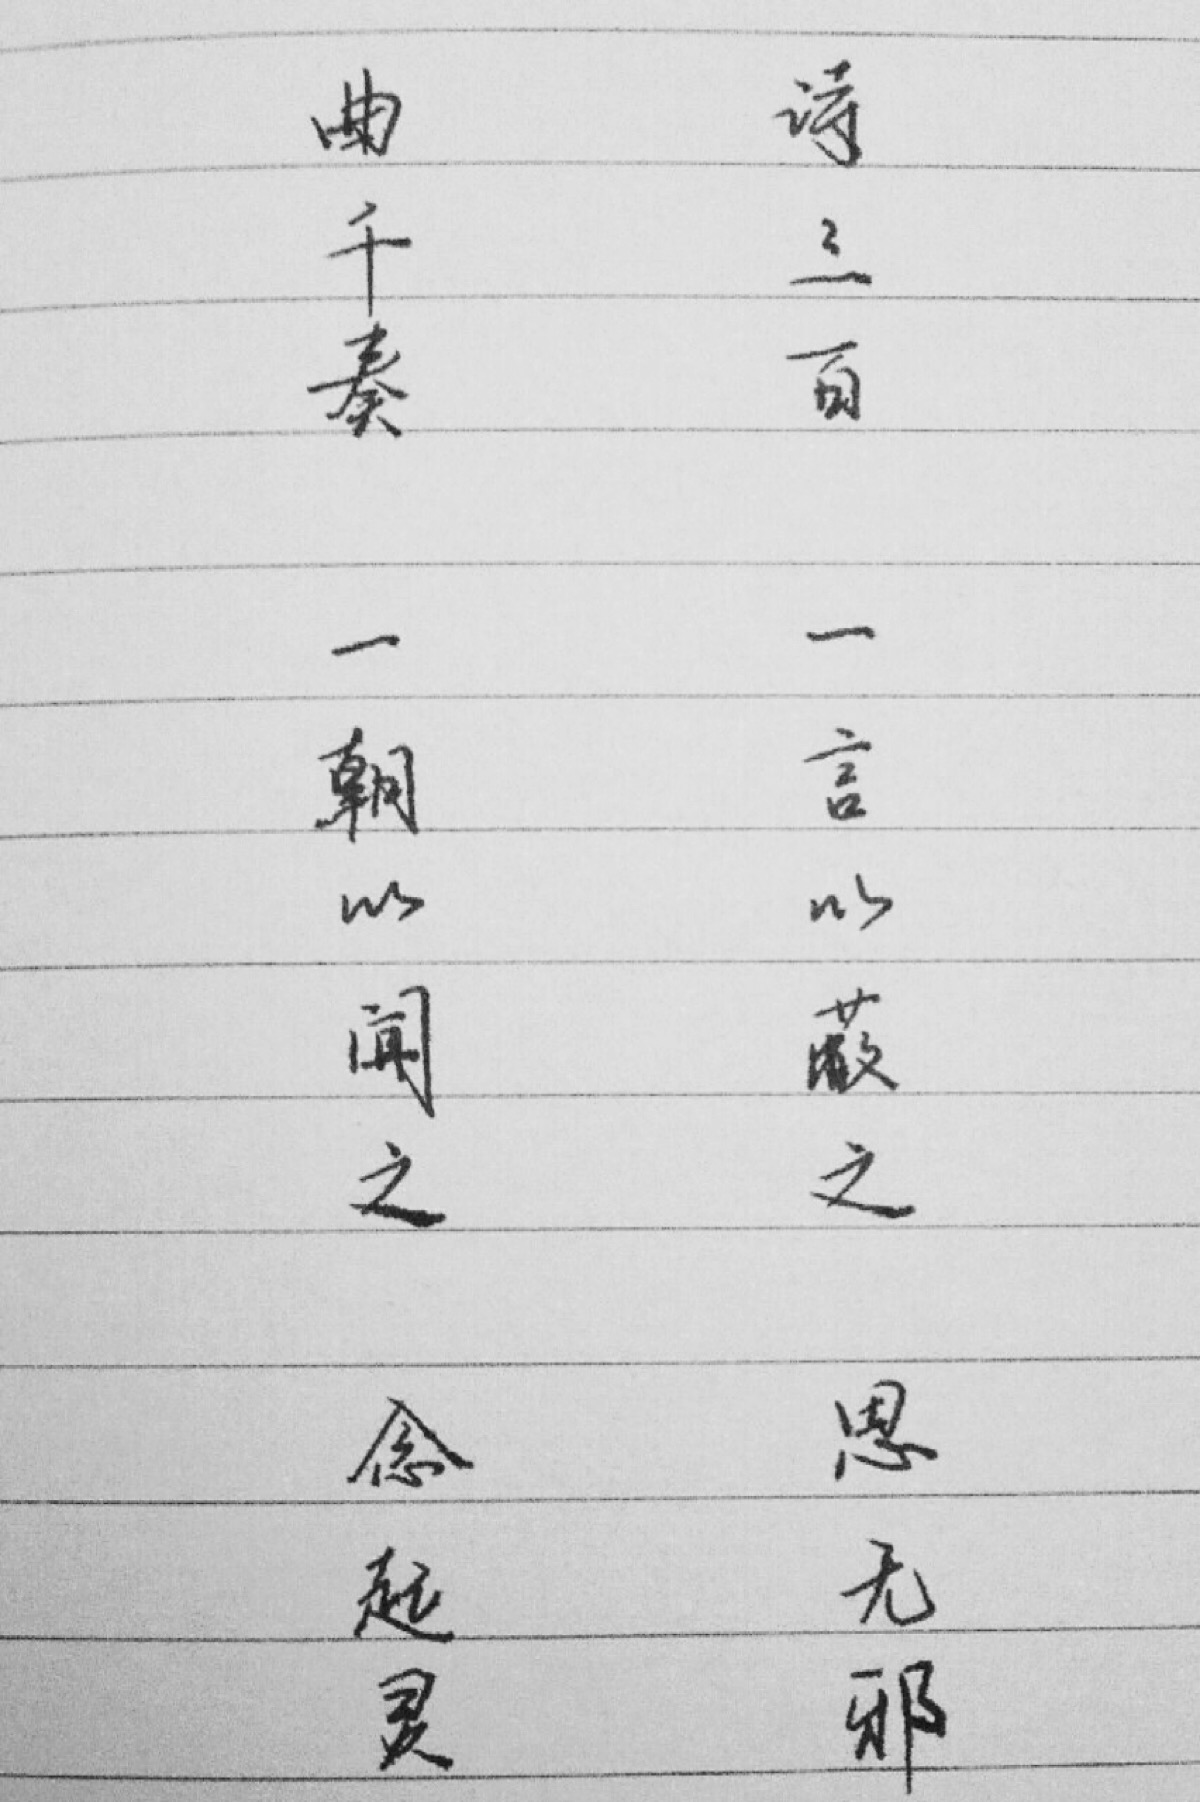 诗三百 一言以蔽之 思无邪
曲千奏 一朝以闻之 念起灵